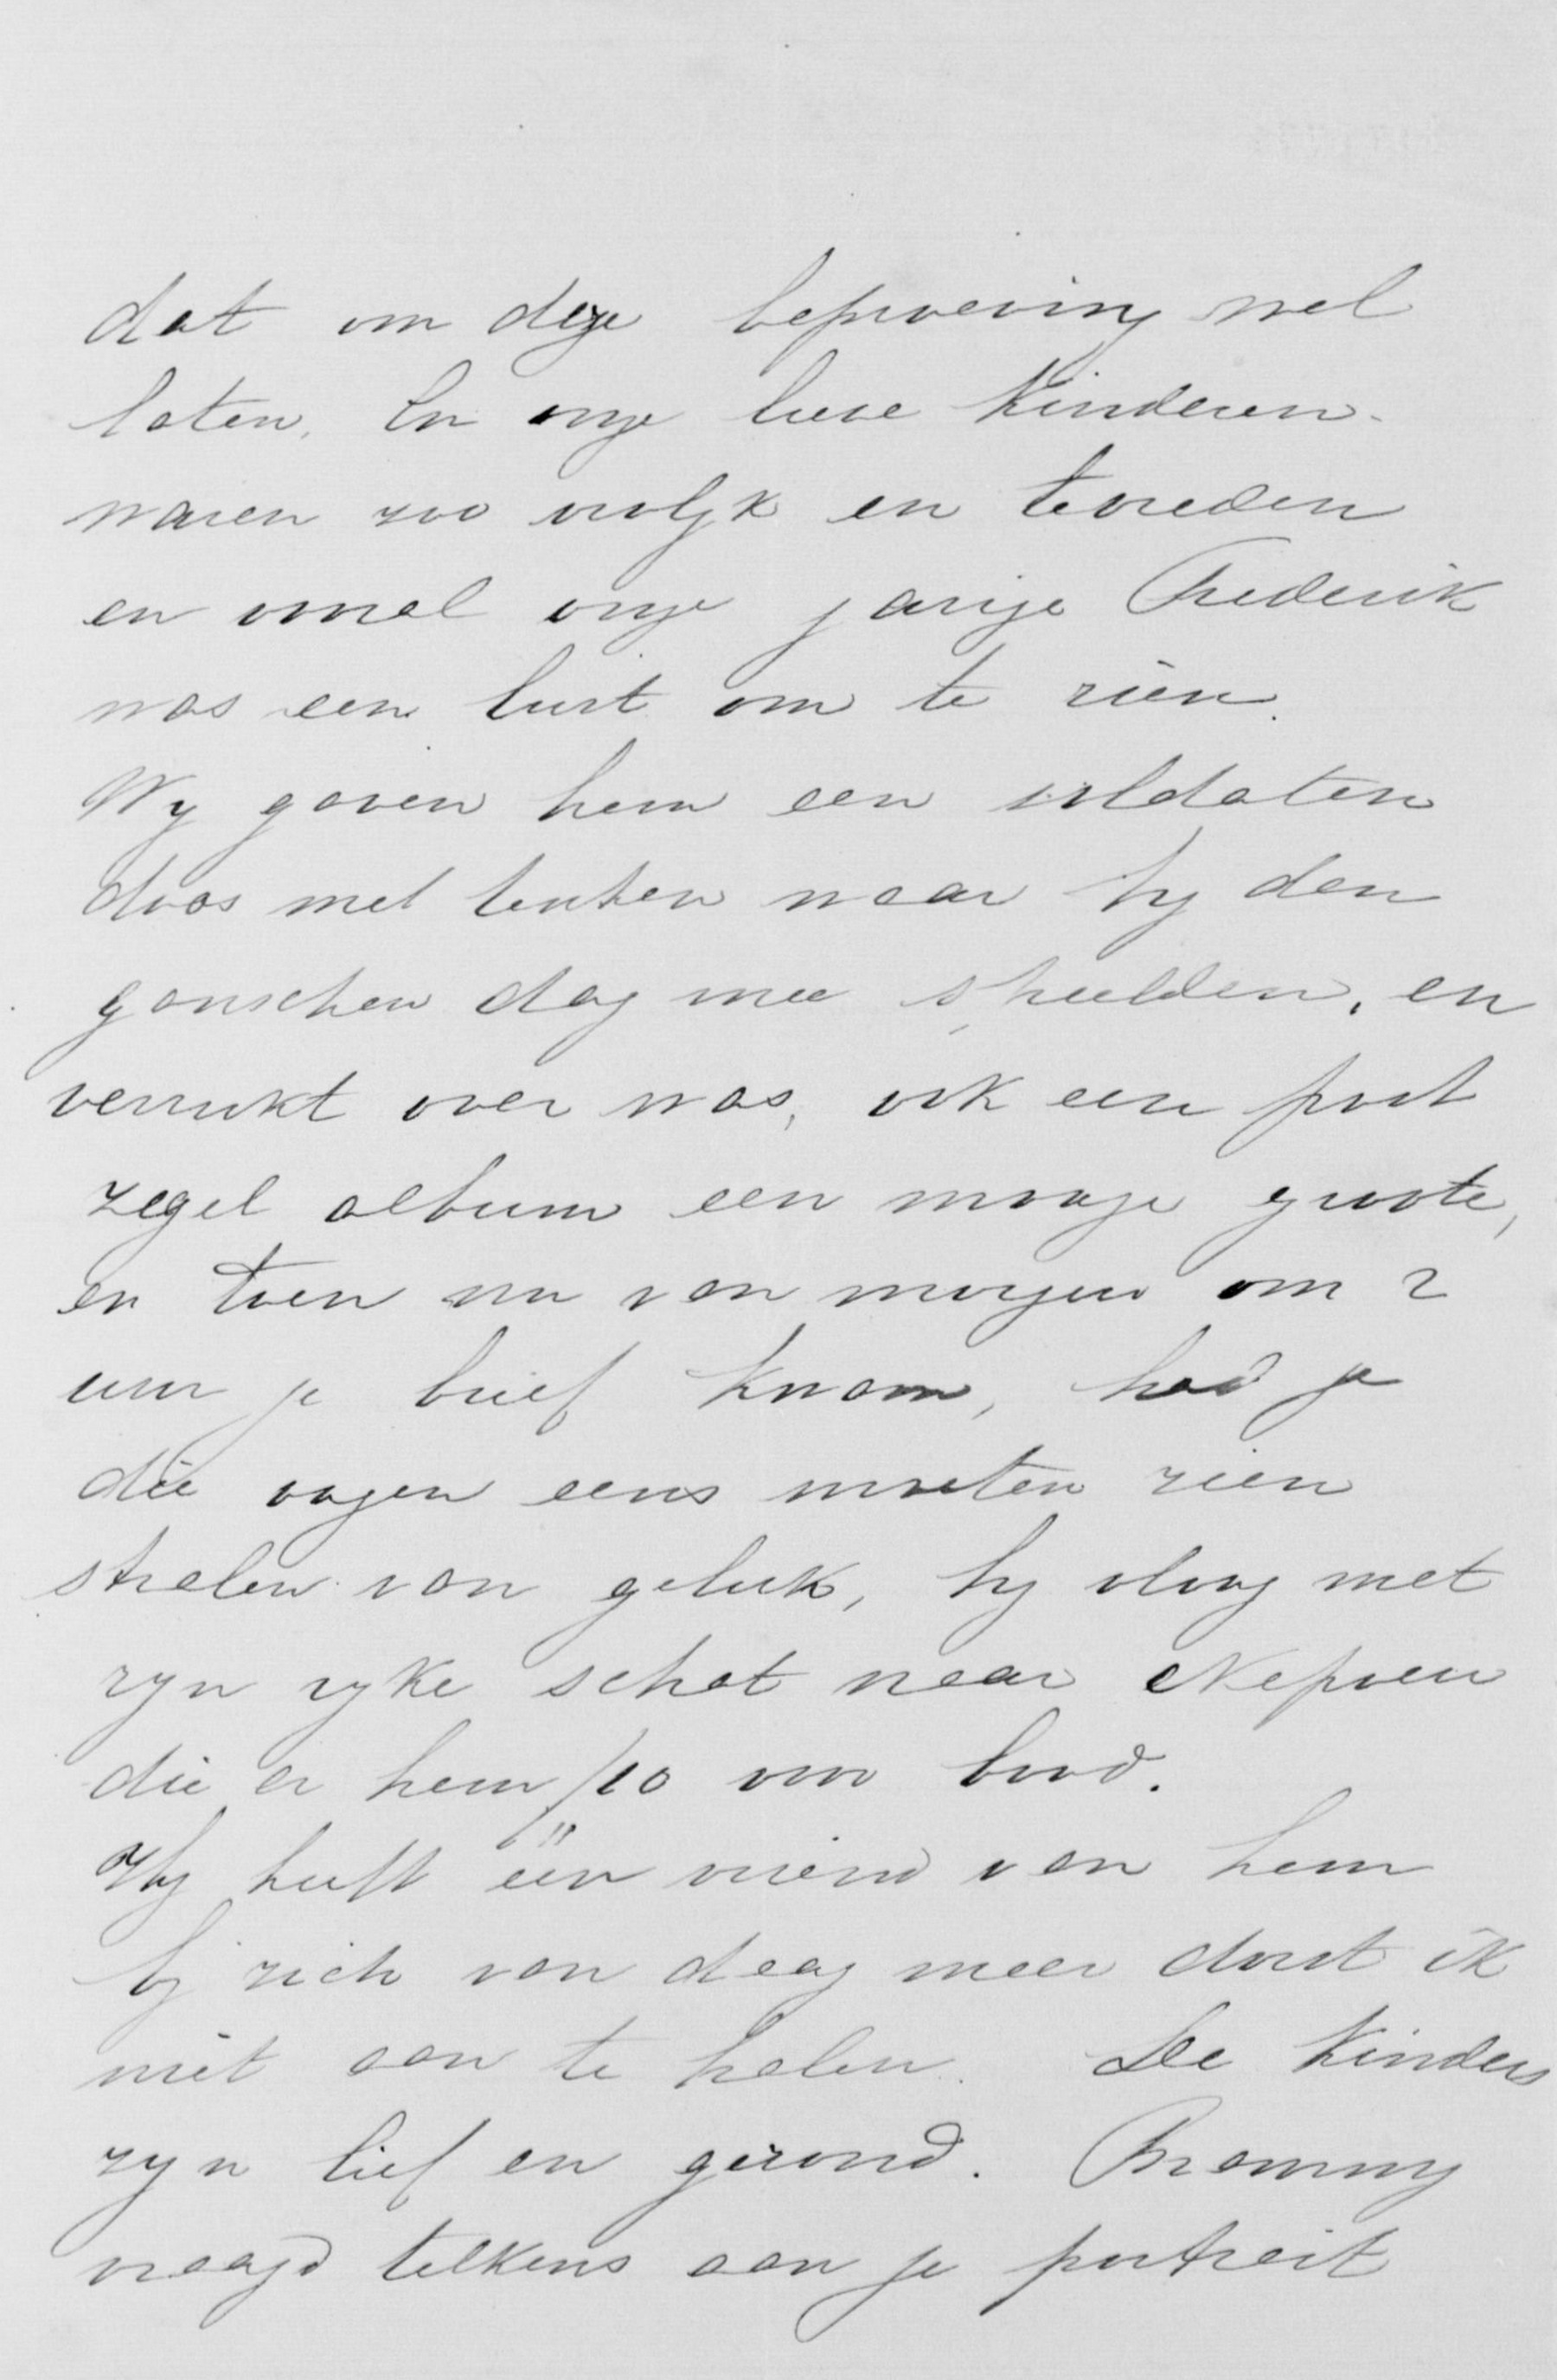 dat om deze beproeving wel
laten. En onze lieve kinderen
waren zoo vrolyk en tevreden
en vooral onze jarige Frederik
was een lust om te zien.
Wy gaven hem een soldaten
doos met tenten waar hy den
ganschen dag mee speelden, en
verrukt over was, ook een post
zegel album een mooye groote,
en toen nu van morgen om 2
uur je brief kwam, had je
die oogen eens moeten zien
stralen van geluk, hy vloog met
zyn ryke schat naar
die er hem f10 voor bood.
Hy heeft één vriend van hem
by zich van daag meer dorst ik
niet aan te halen. De kinders
zyn lief en gezond. Frommy
vraagd telkens aan je portreit